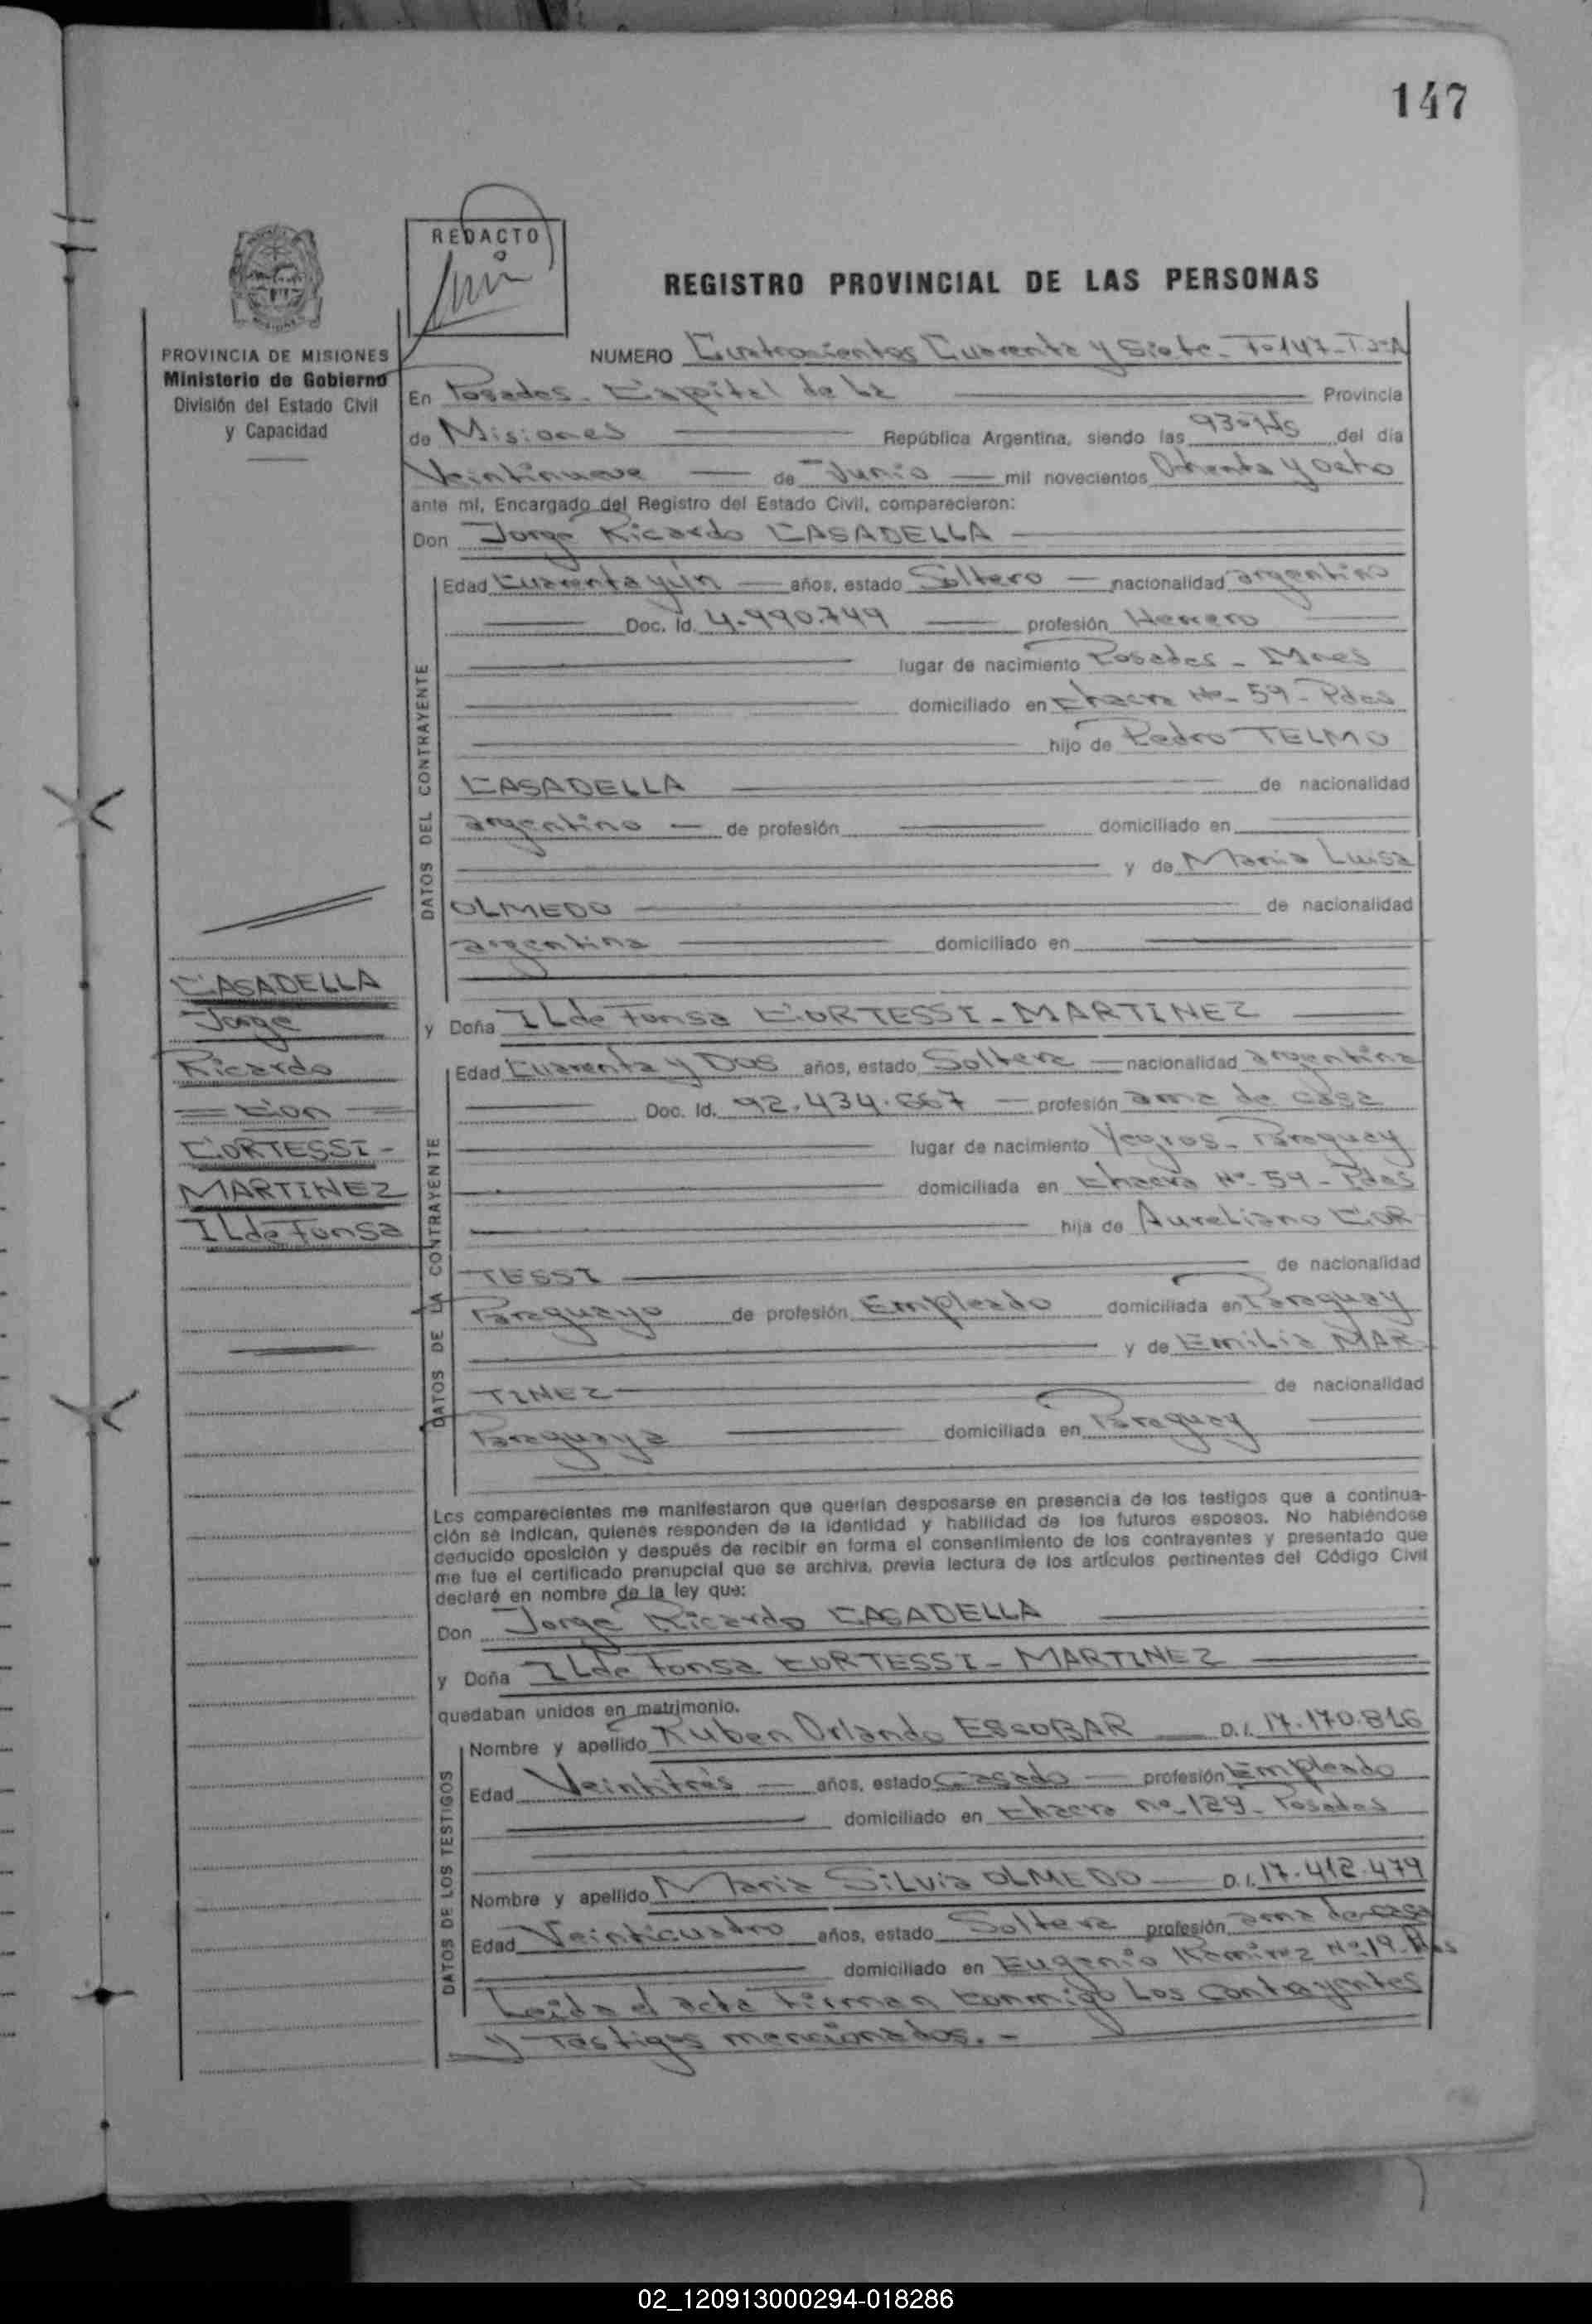 147
REDACTO
REGISTRO PROVINCIAL DE LAS PERSONAS
PROVINCIA DE MISIONES
Ministerio de Gobierno
División del Estado Civil
y Capacidad
NUMERO Cuatrocientos Cuarenta y Siete - Fº147-Tº2ºA
En Posadas - Capital de La Provincia
de Misiones República Argentina, siendo las 930Hs del día
Veintinueve de Junio mil novecientos Ochenta y Ocho
ante mi, Encargado del Registro del Estado Civil, comparecieron:
Don Jorge Ricardo CASADELLA
DATOS DEL CONTRAYENTE
Edad Cuarenta y un años, estado Soltero nacionalidad argentino
Doc. Id. 4.990.749 profesión Herrero
lugar de nacimiento Posadas - Mnes
domiciliado en Chacra Nº- 59 - Pdas
hijo de Pedro TELMO
CASADELLA de nacionalidad
argentino de profesión domiciliado en
y de Maria Luisa
OLMEDO de nacionalidad
argentina domiciliado en
CASADELLA
Jorge
Ricardo
= Con =
CORTESSI -
MARTINEZ
ILdeFonsa
y Doña ILdeFonsa CORTESSI - MARTINEZ
DATOS DE LA CONTRAYENTE
Edad Cuarenta y Dos años, estado Soltera nacionalidad argentina
Doc. Id. 92.434.667 profesión ama de casa
lugar de nacimiento Yegros - Paraguay
domiciliada en Chacra Nº- 59 - Pdas
hija de Aureliano COR
TESSI de nacionalidad
Paraguayo de profesión Empleado domiciliada en Paraguay
y de Emilia MAR
TINEZ de nacionalidad
Paraguaya domiciliada en Paraguay
Los comparecientes me manifestaron que querían desposarse en presencia de los testigos que a continua-
ción se indican, quienes responden de la identidad y habilidad de los futuros esposos. No habiéndose
deducido oposición y después de recibir en forma el consentimiento de los contraventes y presentado que
me fue el certificado prenupcial que se archiva, previa lectura de los artículos pertinentes del Código Civil
declaré en nombre de la ley que:
Don Jorge Ricardo CASADELLA
y Doña ILdeFonsa CORTESSI - MARTINEZ
quedaban unidos en matrimonio.
DATOS DE LOS TESTIGOS
Nombre y apellido Ruben Orlando ESCOBAR D.I. 17.170.816
Edad Veintitrés años, estado Casado profesión Empleado
domiciliado en Chacra no-129- Posadas
Nombre y apellido Maria SiLvia OLMEDO D.I. 17.412.479
Edad Veinticuatro años, estado Soltera profesión ama de casa
domiciliado en Eugenio Ramirez Nº19-
Leida el acta Firman conmigo Los contrayentes
y Testigos mencionados.-
02_120913000294-018286